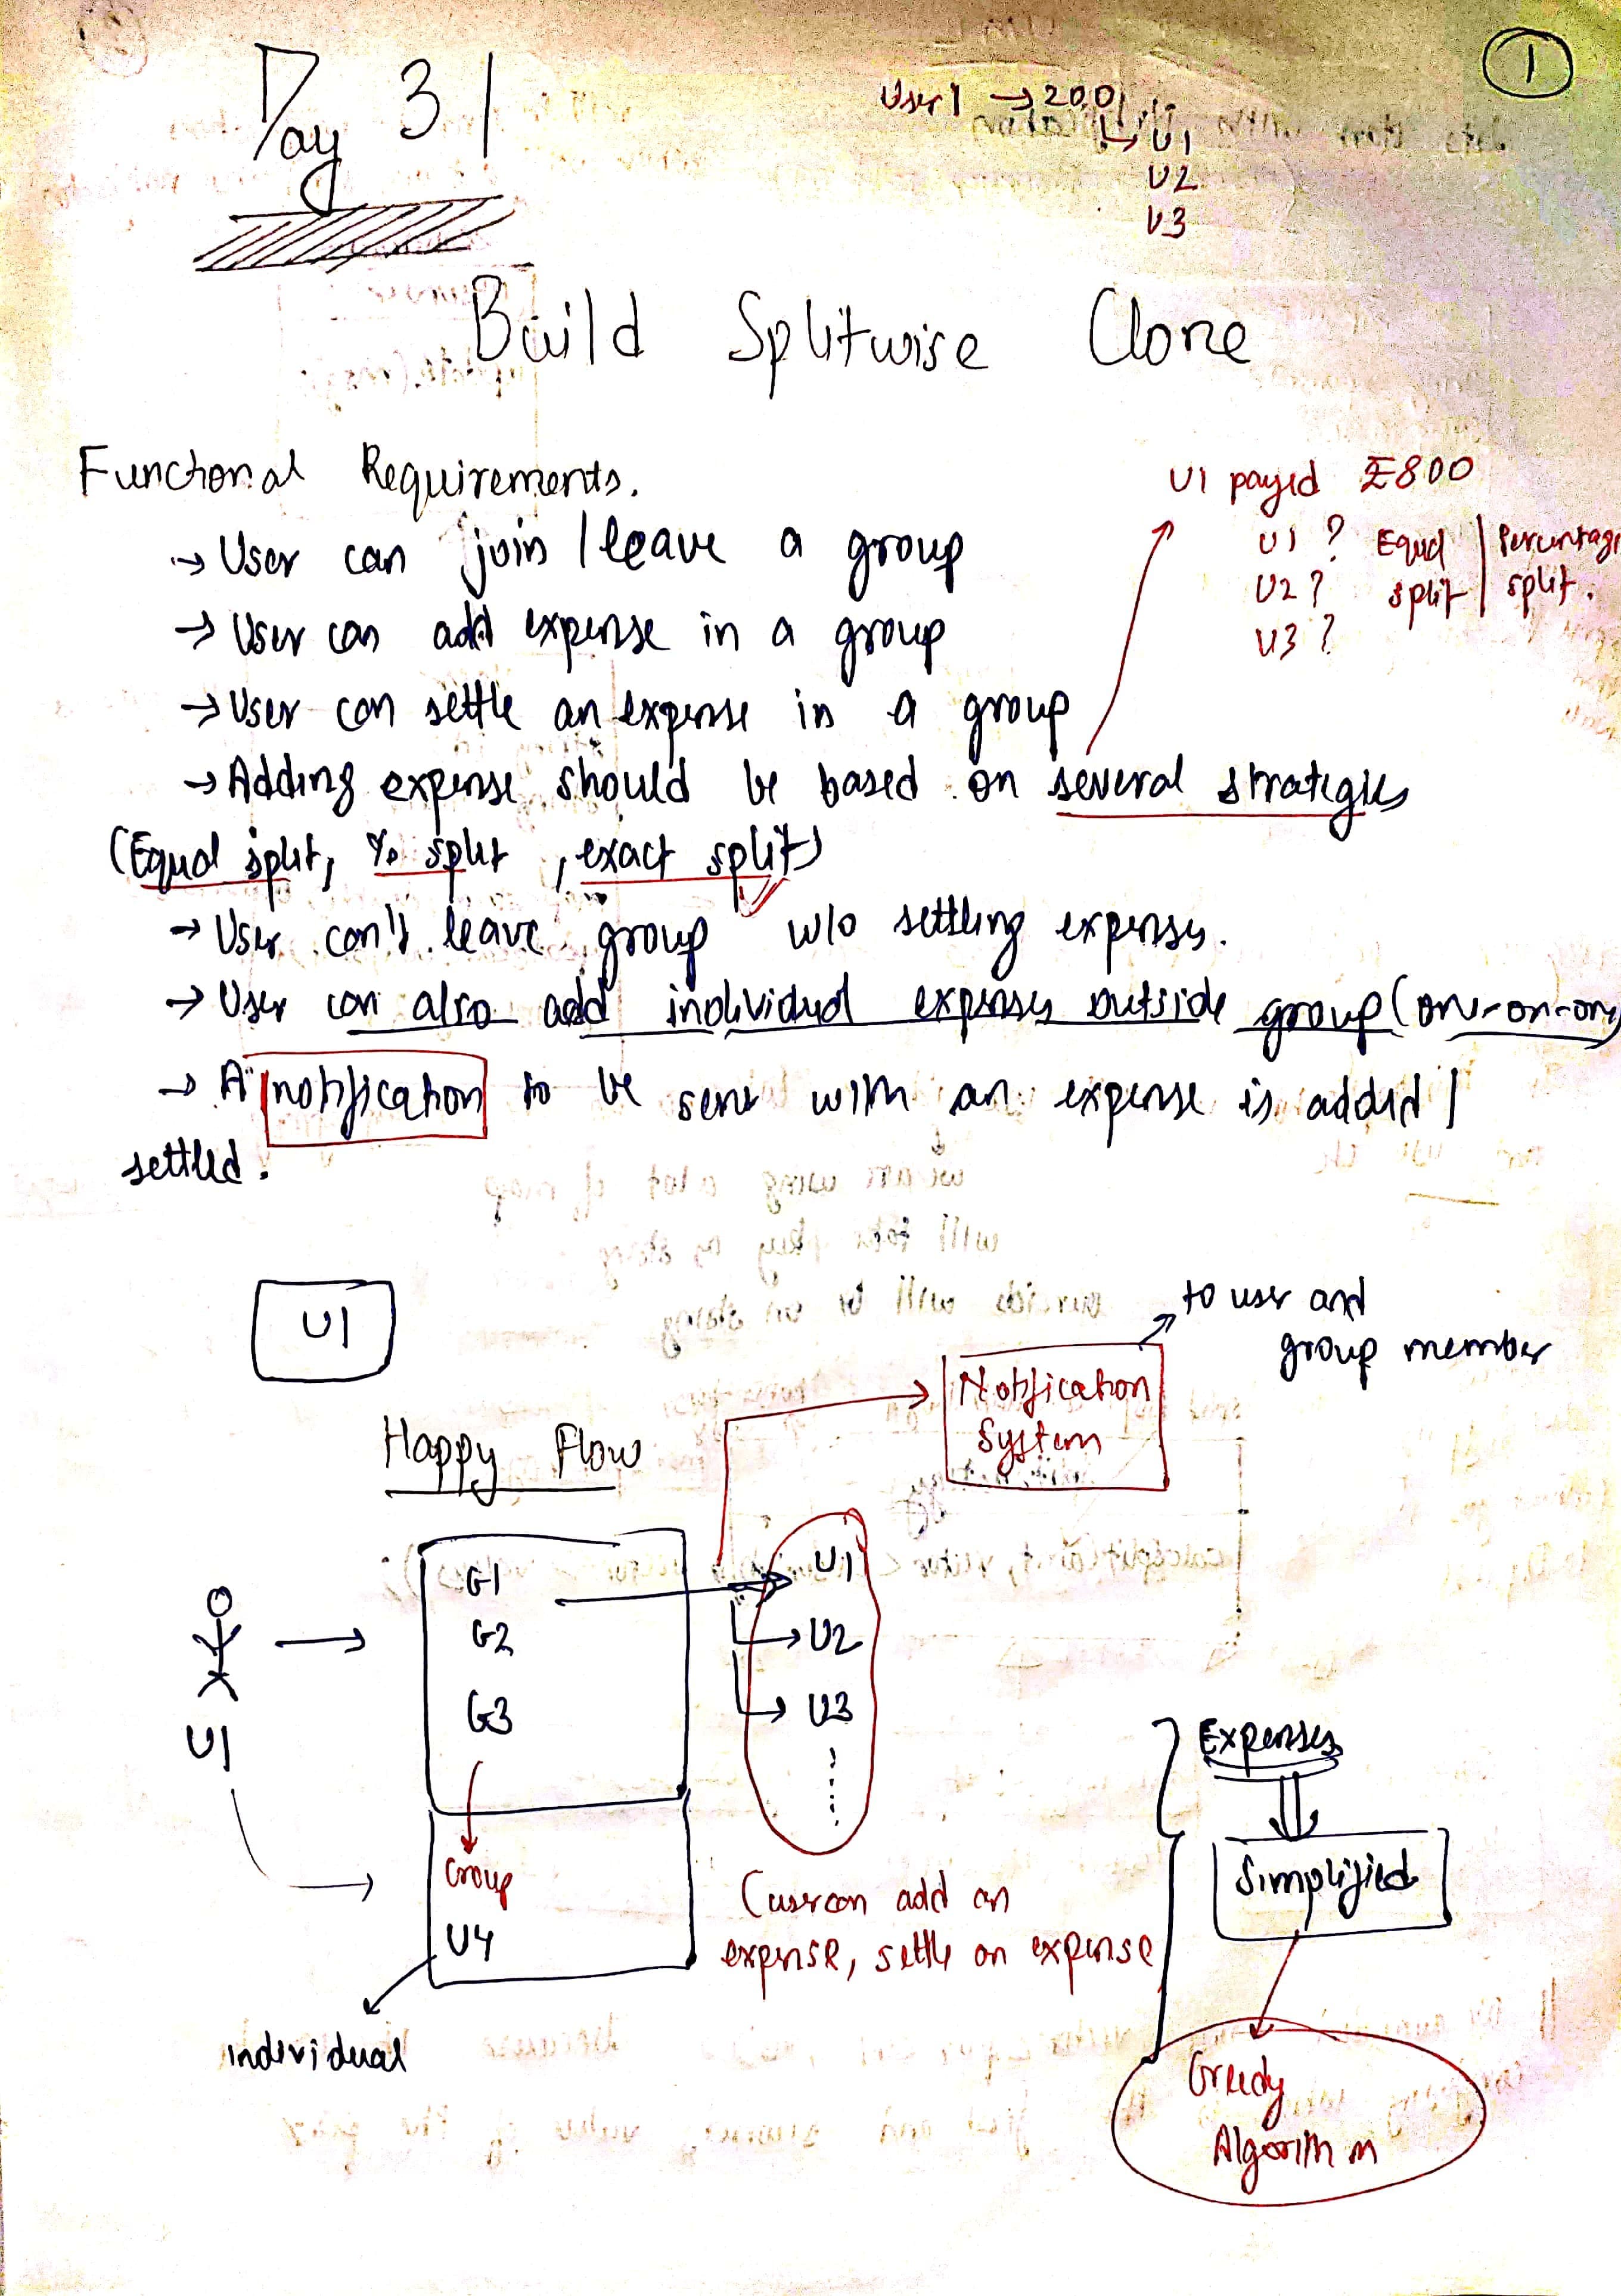 1
Day 31
User1 → 200
↳ U1
U2
U3
Build Splitwise Clone
Functional Requirements.
→ User can join / leave a group
→ User can add expense in a group
→ User can settle an expense in a group
→ Adding expense should be based on several strategies
(Equal split, % split, exact split)
→ User can't leave group w/o settling expenses.
→ User can also add individual expenses outside group (one-on-one)
→ A notification to be sent with an expense is added /
settled.
U1 payed ₹800
U1 ? Equal | Percentage
U2 ? split | split.
U3 ?
U1
to user and
group member
Notification
System
Happy Flow
G1
G2
G3
U1
U2
U3
U1
Group
U4
individual
(user can add an
expense, settle an expense
Expenses
Simplified
Greedy
Algorithm